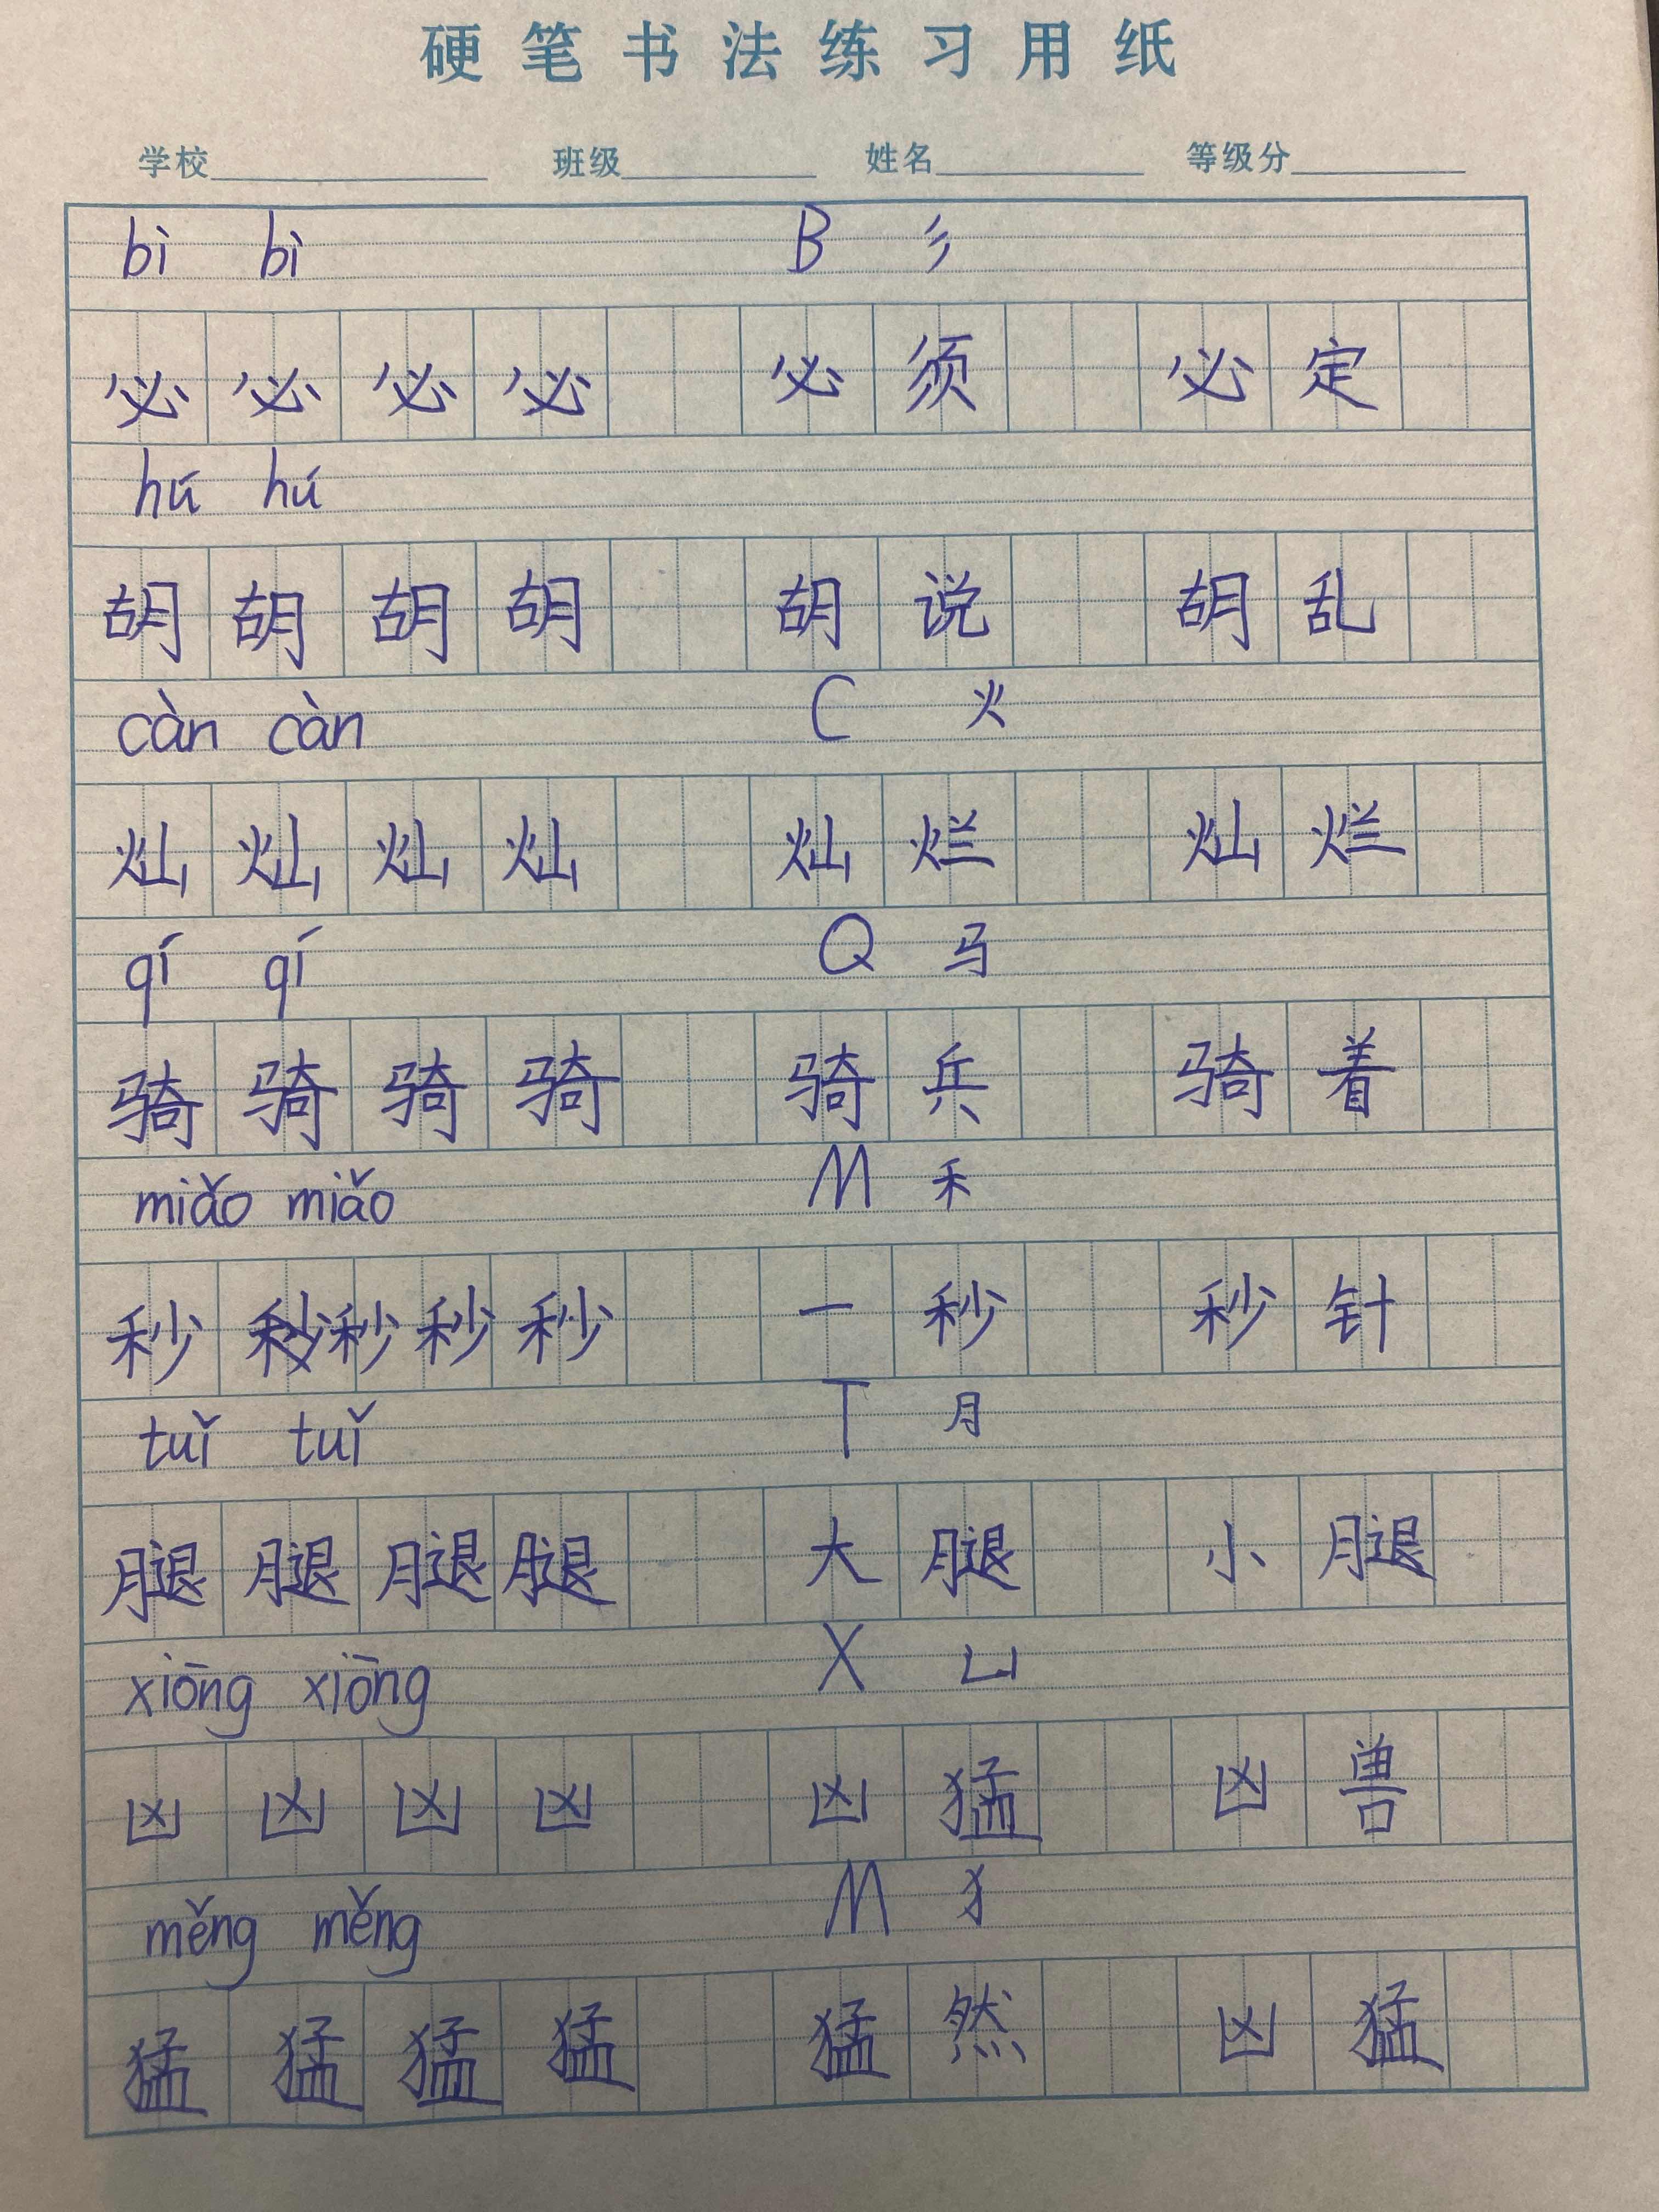 硬笔书法练习用纸
学校 班级 姓名 等级分
bì bì B 彡
必 必 必 必 必 须 必 定
hú hú
胡 胡 胡 胡 胡 说 胡 乱
càn càn C 火
灿 灿 灿 灿 灿 烂 灿 烂
qí qí Q 马
骑 骑 骑 骑 骑 兵 骑 着
miǎo miǎo M 禾
秒 秒 秒 秒 一 秒 秒 针
tuǐ tuǐ T 月
腿 腿 腿 腿 大 腿 小 腿
xiōng xiōng X 凵
凶 凶 凶 凶 凶 猛 凶 兽
měng měng M 犭
猛 猛 猛 猛 猛 然 凶 猛